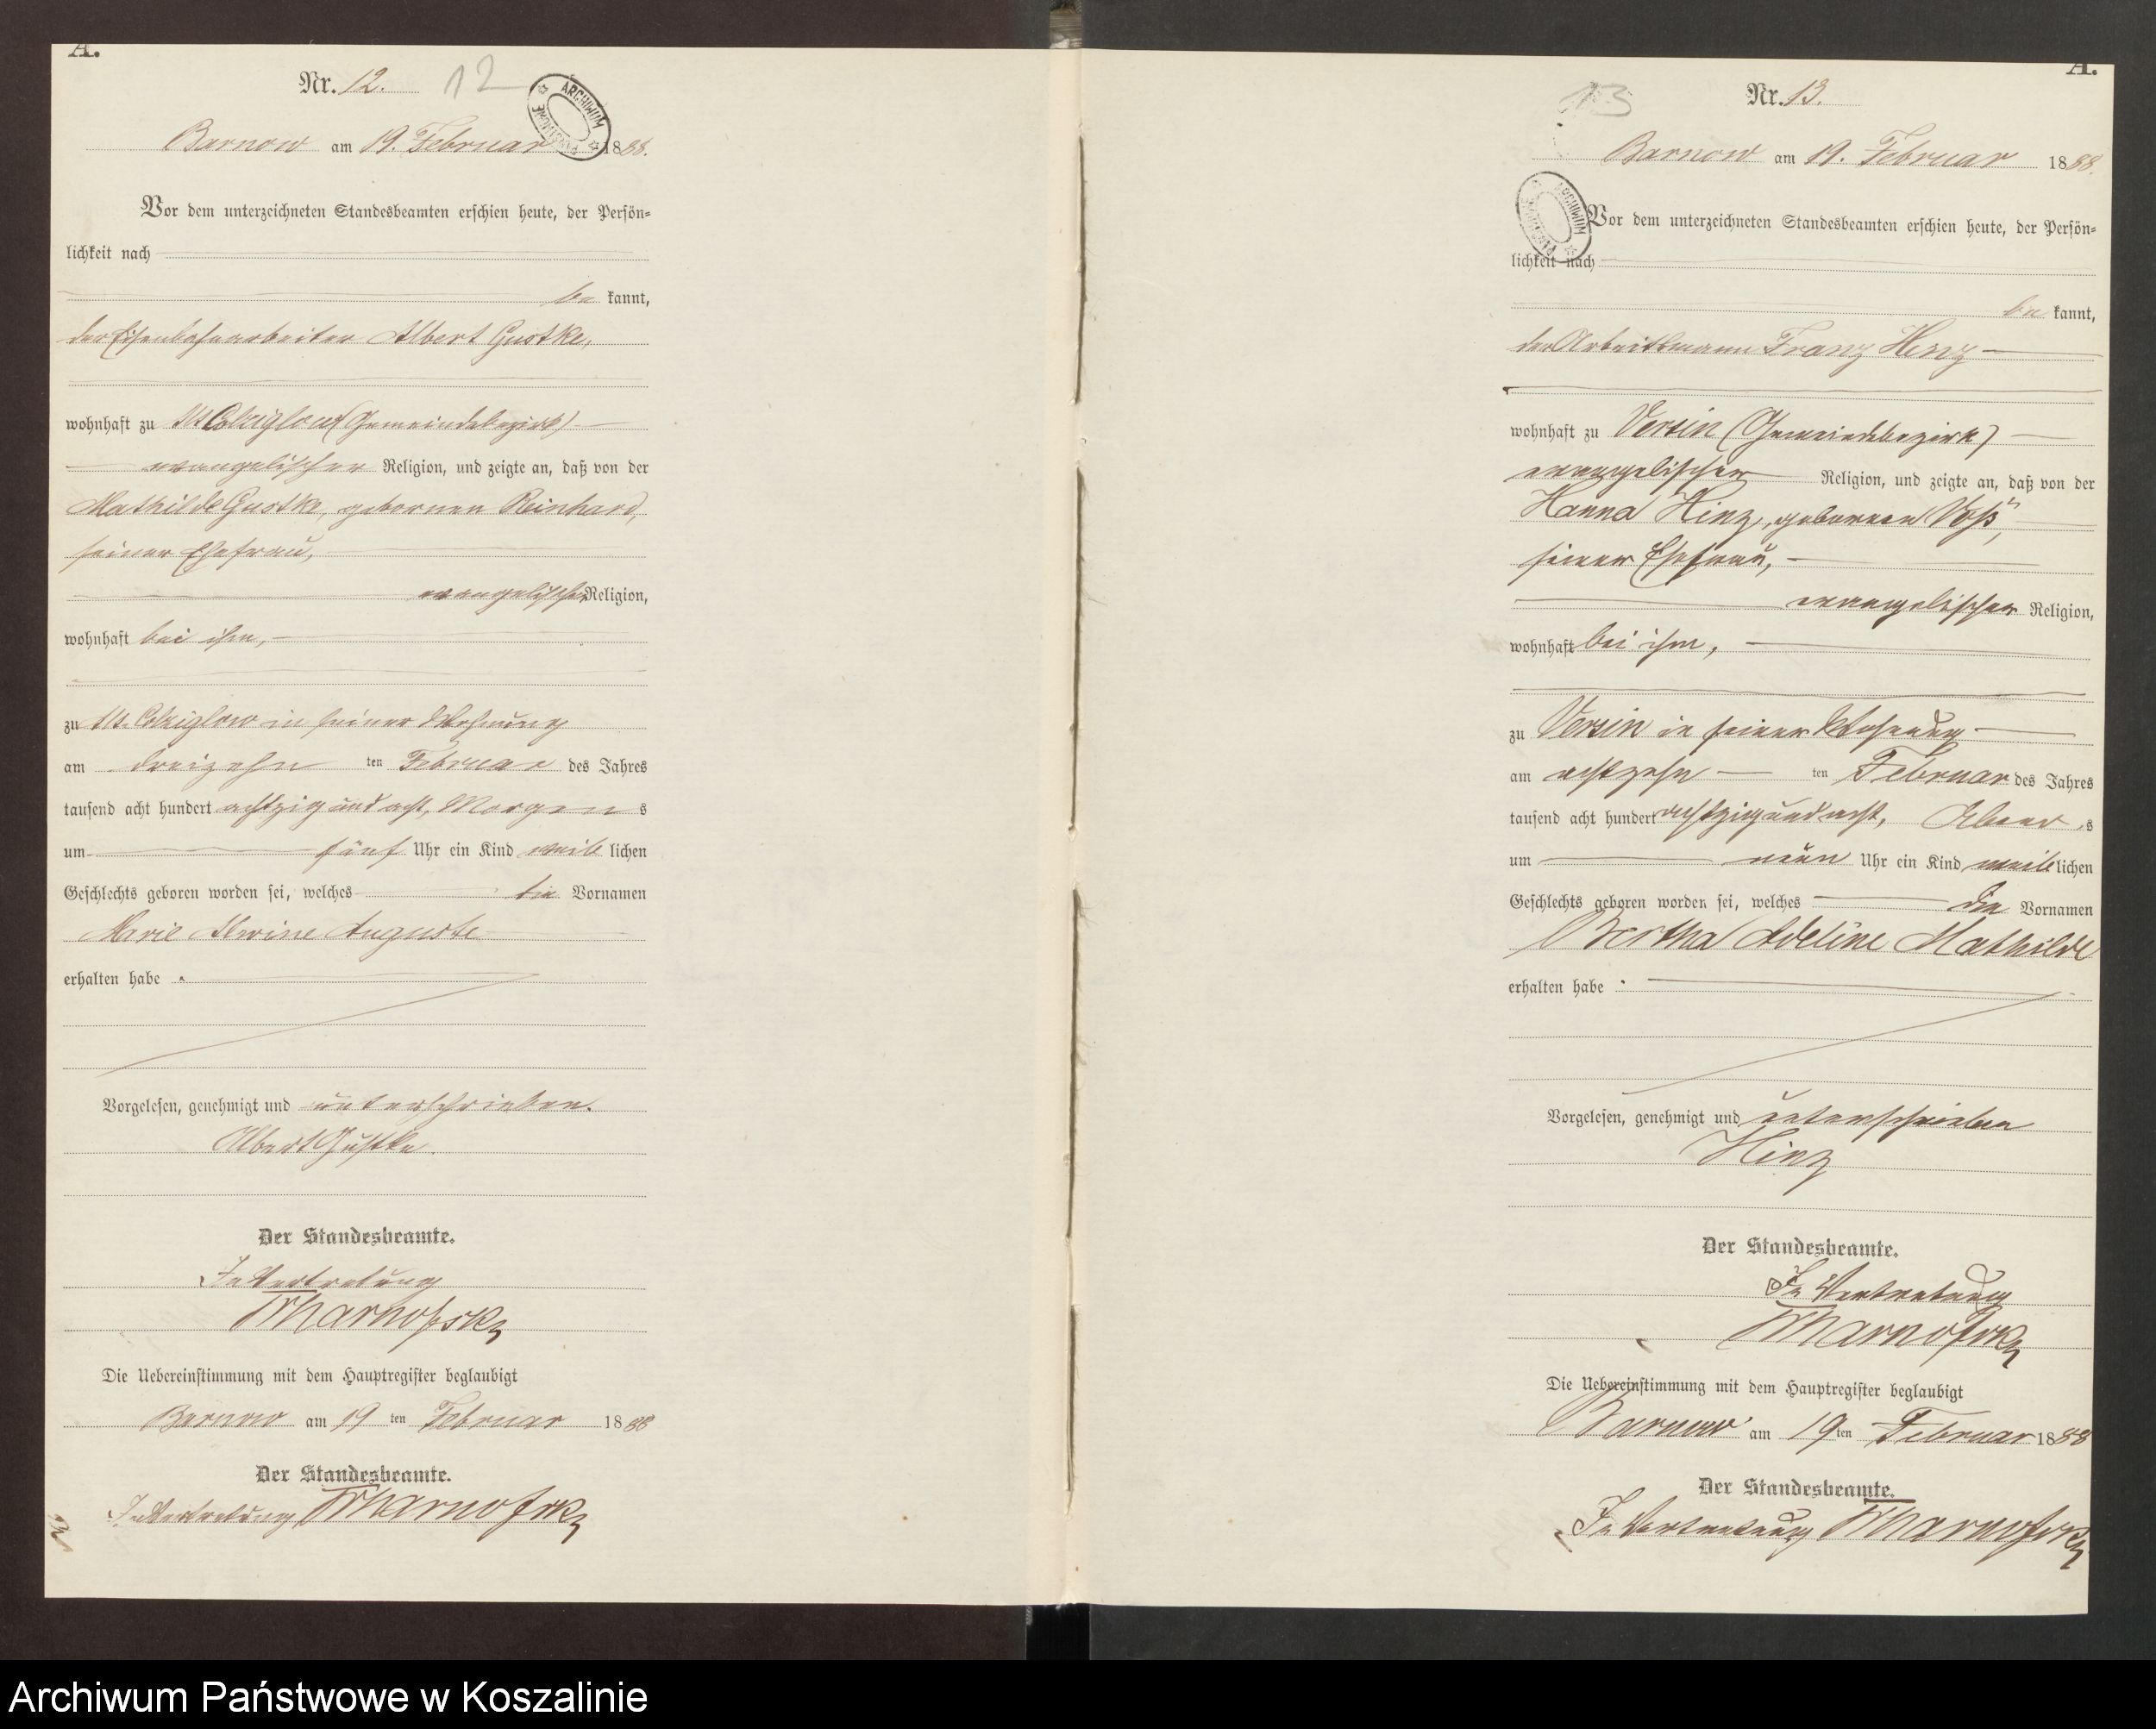 A.
Nr. 12. 12
ARCHIWUM PAŃSTWOWE
Barnow am 19. Februar 1888.
Vor dem unterzeichneten Standesbeamten erschien heute, der Persön=
lichkeit nach
be kannt,
der Eisenbahnarbeiter Albert Gustke,
wohnhaft zu (Gemeindebezirk)
evangelischer Religion, und zeigte an, daß von der
Mathilde Gustke, geborenen Reinhard,
seiner Ehefrau,
evangelischer Religion,
wohnhaft bei ihm,
zu in seiner Wohnung
am dreizehn ten Februar des Jahres
tausend acht hundert achtzig und acht, Morgen s
um fünf Uhr ein Kind weib lichen
Geschlechts geboren worden sei, welches die Vornamen
Marie Alwine Auguste
erhalten habe.
Vorgelesen, genehmigt und unterschrieben.
Albert Gustke.
Der Standesbeamte.
In Vertretung
Die Uebereinstimmung mit dem Hauptregister beglaubigt
Barnow am 19 ten Februar 1888
Der Standesbeamte.
In Vertretung
A.
13 Nr. 13.
Barnow am 19. Februar 1888.
ARCHIWUM PAŃSTWOWE
Vor dem unterzeichneten Standesbeamten erschien heute, der Persön=
lichkeit nach
be kannt,
der Arbeitsmann Franz Hinz
wohnhaft zu Versin (Gemeindebezirk)
evangelischer Religion, und zeigte an, daß von der
Hanna Hinz, geborenen Voß,
seiner Ehefrau,
evangelischer Religion,
wohnhaft bei ihm,
zu Versin in seiner Wohnung
am achtzehn ten Februar des Jahres
tausend acht hundert achtzig und acht, Abend s
um neun Uhr ein Kind weib lichen
Geschlechts geboren worden sei, welches die Vornamen
Bertha Adeline Mathilde
erhalten habe.
Vorgelesen, genehmigt und unterschrieben
Hinz
Der Standesbeamte.
In Vertretung
Die Uebereinstimmung mit dem Hauptregister beglaubigt
Barnow am 19 ten Februar 1888
Der Standesbeamte.
In Vertretung
Archiwum Państwowe w Koszalinie